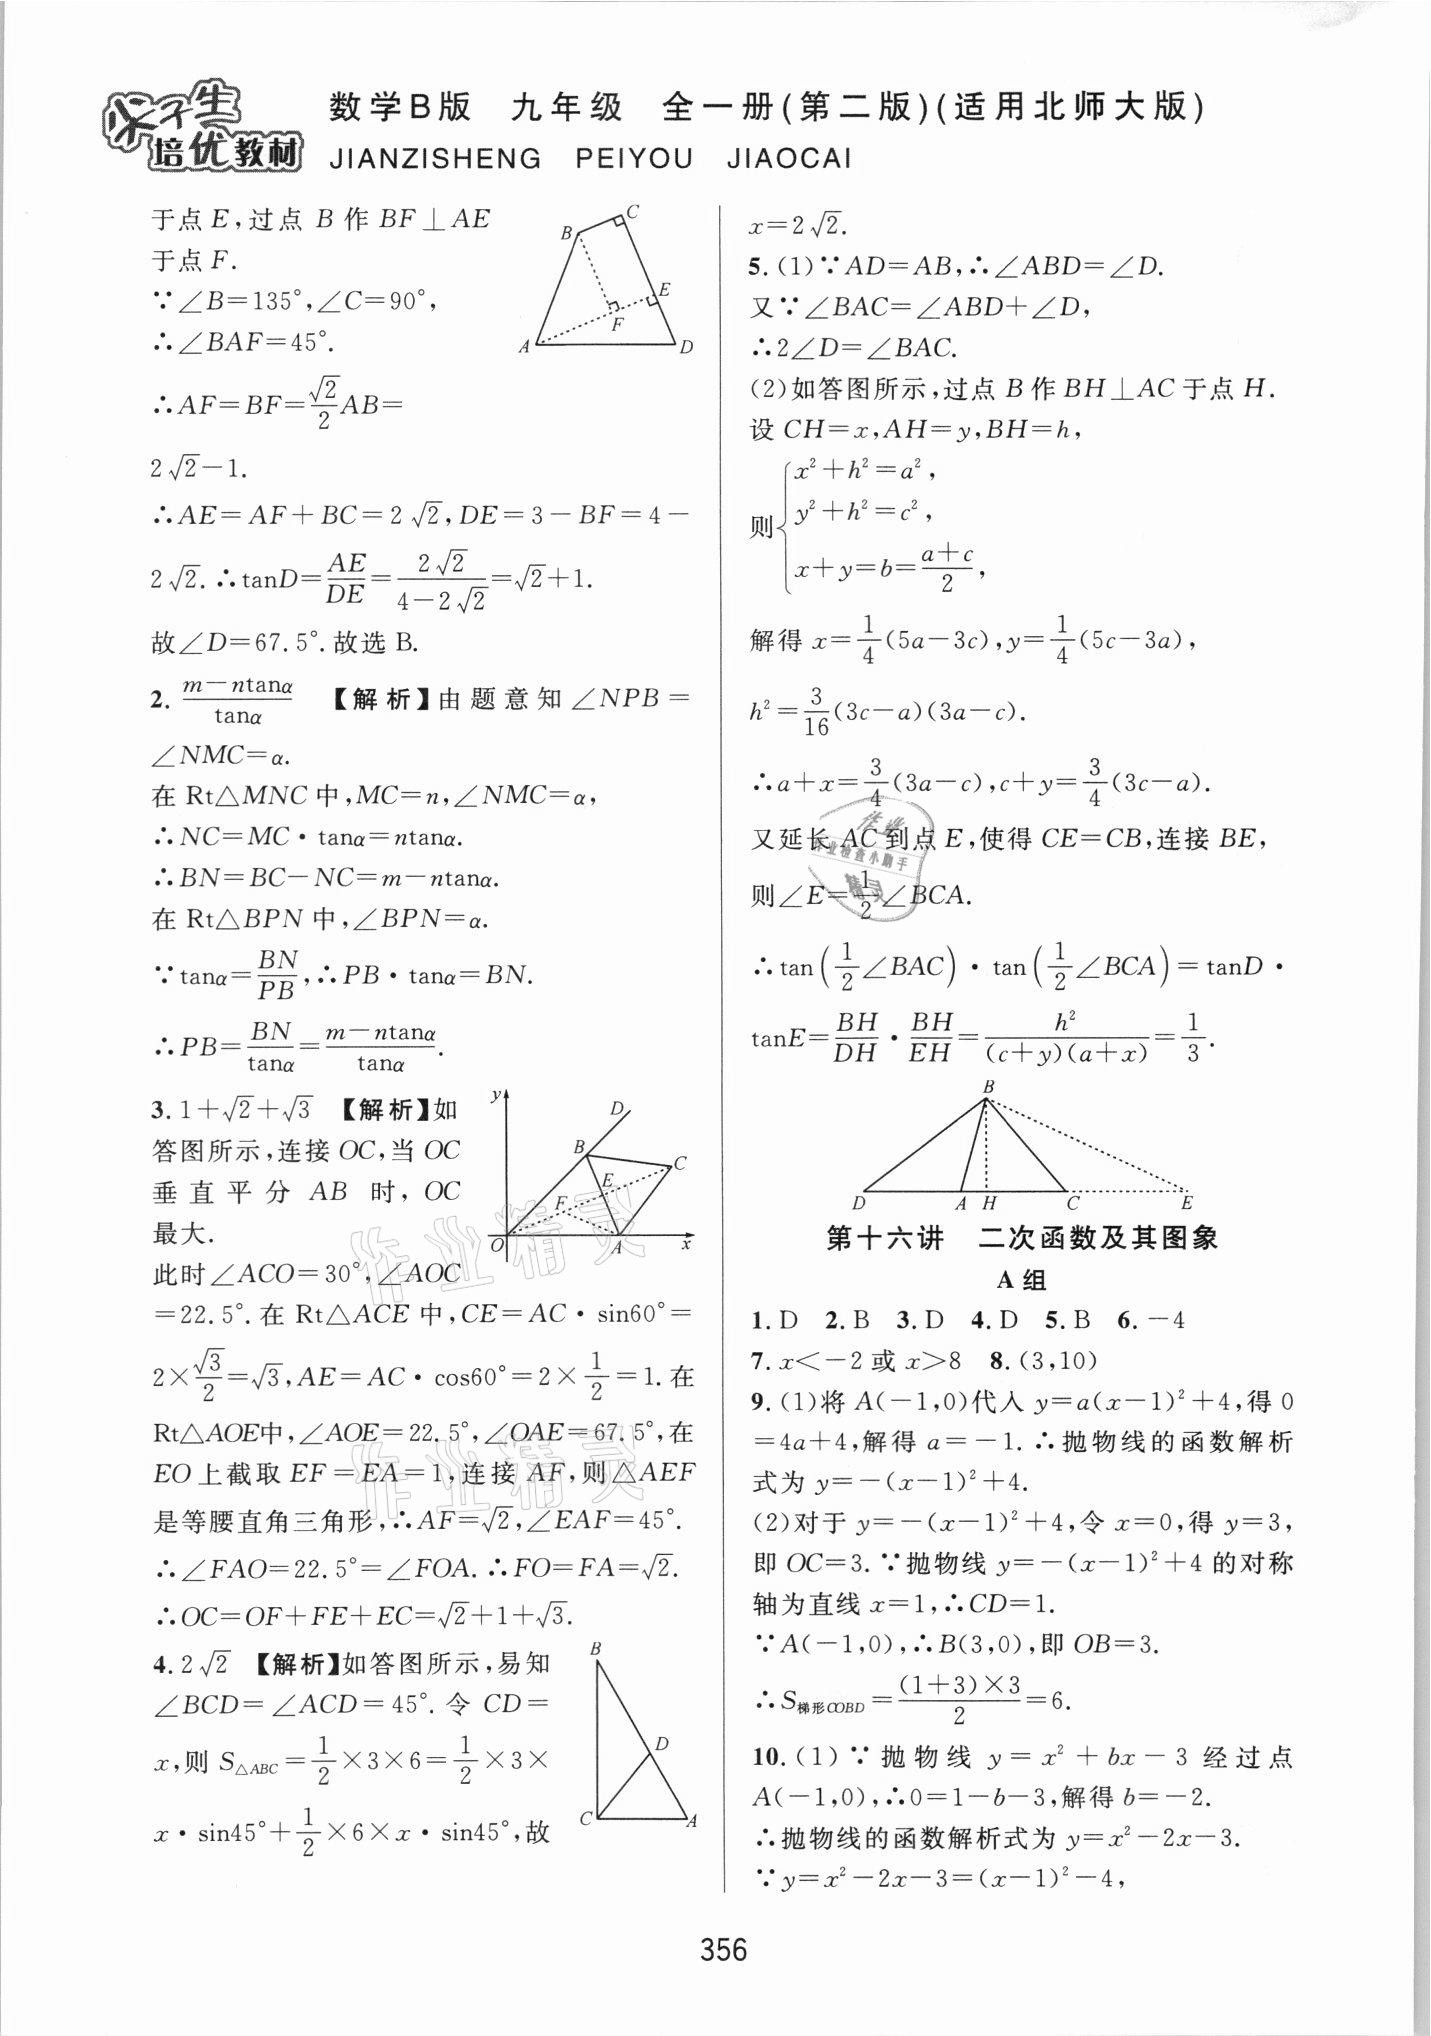 尖子生
培优教材
数学B版 九年级 全一册(第二版)(适用北师大版)
JIANZISHENG PEIYOU JIAOCAI
于点 E,过点 B 作 BF⊥AE
于点 F.
∵∠B=135°,∠C=90°,
∴∠BAF=45°.
∴AF=BF=\frac{√2}{2}AB=
2√2-1.
∴AE=AF+BC=2√2,DE=3-BF=4-
2√2.∴tanD=\frac{AE}{DE}=\frac{2√2}{4-2√2}=√2+1.
故∠D=67.5°.故选 B.
B
C
E
F
A
D
2. \frac{m-ntanα}{tanα} 【解析】由题意知∠NPB=
∠NMC=α.
在 Rt△MNC 中,MC=n,∠NMC=α,
∴NC=MC·tanα=ntanα.
∴BN=BC-NC=m-ntanα.
在 Rt△BPN 中,∠BPN=α.
∵tanα=\frac{BN}{PB},∴PB·tanα=BN.
∴PB=\frac{BN}{tanα}=\frac{m-ntanα}{tanα}.
3. 1+√2+√3 【解析】如
答图所示,连接 OC,当 OC
垂直平分 AB 时, OC
最大.
此时∠ACO=30°,∠AOC
=22.5°.在 Rt△ACE 中,CE=AC·sin60°=
2×\frac{√3}{2}=√3,AE=AC·cos60°=2×\frac{1}{2}=1.在
Rt△AOE中,∠AOE=22.5°,∠OAE=67.5°,在
EO 上截取 EF=EA=1,连接 AF,则△AEF
是等腰直角三角形,∴AF=√2,∠EAF=45°.
∴∠FAO=22.5°=∠FOA.∴FO=FA=√2.
∴OC=OF+FE+EC=√2+1+√3.
y
D
B
C
E
F
O
A
x
4. 2√2 【解析】如答图所示,易知
∠BCD=∠ACD=45°.令 CD=
x,则 S△ABC=\frac{1}{2}×3×6=\frac{1}{2}×3×
x·sin45°+\frac{1}{2}×6×x·sin45°,故
B
D
C
A
x=2√2.
5. (1)∵AD=AB,∴∠ABD=∠D.
又∵∠BAC=∠ABD+∠D,
∴2∠D=∠BAC.
(2)如答图所示,过点 B 作 BH⊥AC 于点 H.
设 CH=x,AH=y,BH=h,
则{x²+h²=a²,
y²+h²=c²,
x+y=b=\frac{a+c}{2},
解得 x=\frac{1}{4}(5a-3c),y=\frac{1}{4}(5c-3a),
h²=\frac{3}{16}(3c-a)(3a-c).
∴a+x=\frac{3}{4}(3a-c),c+y=\frac{3}{4}(3c-a).
又延长 AC 到点 E,使得 CE=CB,连接 BE,
则∠E=\frac{1}{2}∠BCA.
∴tan(\frac{1}{2}∠BAC)·tan(\frac{1}{2}∠BCA)=tanD·
tanE=\frac{BH}{DH}·\frac{BH}{EH}=\frac{h²}{(c+y)(a+x)}=\frac{1}{3}.
B
D
A
H
C
E
第十六讲 二次函数及其图象
A 组
1. D 2. B 3. D 4. D 5. B 6. -4
7. x<-2 或 x>8 8. (3,10)
9. (1)将 A(-1,0)代入 y=a(x-1)²+4,得 0
=4a+4,解得 a=-1.∴抛物线的函数解析
式为 y=-(x-1)²+4.
(2)对于 y=-(x-1)²+4,令 x=0,得 y=3,
即 OC=3.∵抛物线 y=-(x-1)²+4 的对称
轴为直线 x=1,∴CD=1.
∵A(-1,0),∴B(3,0),即 OB=3.
∴S梯形COBD=\frac{(1+3)×3}{2}=6.
10. (1)∵抛物线 y=x²+bx-3 经过点
A(-1,0),∴0=1-b-3,解得 b=-2.
∴抛物线的函数解析式为 y=x²-2x-3.
∵y=x²-2x-3=(x-1)²-4,
作业
作业检查小助手
精灵
作业精灵
作业精灵
356